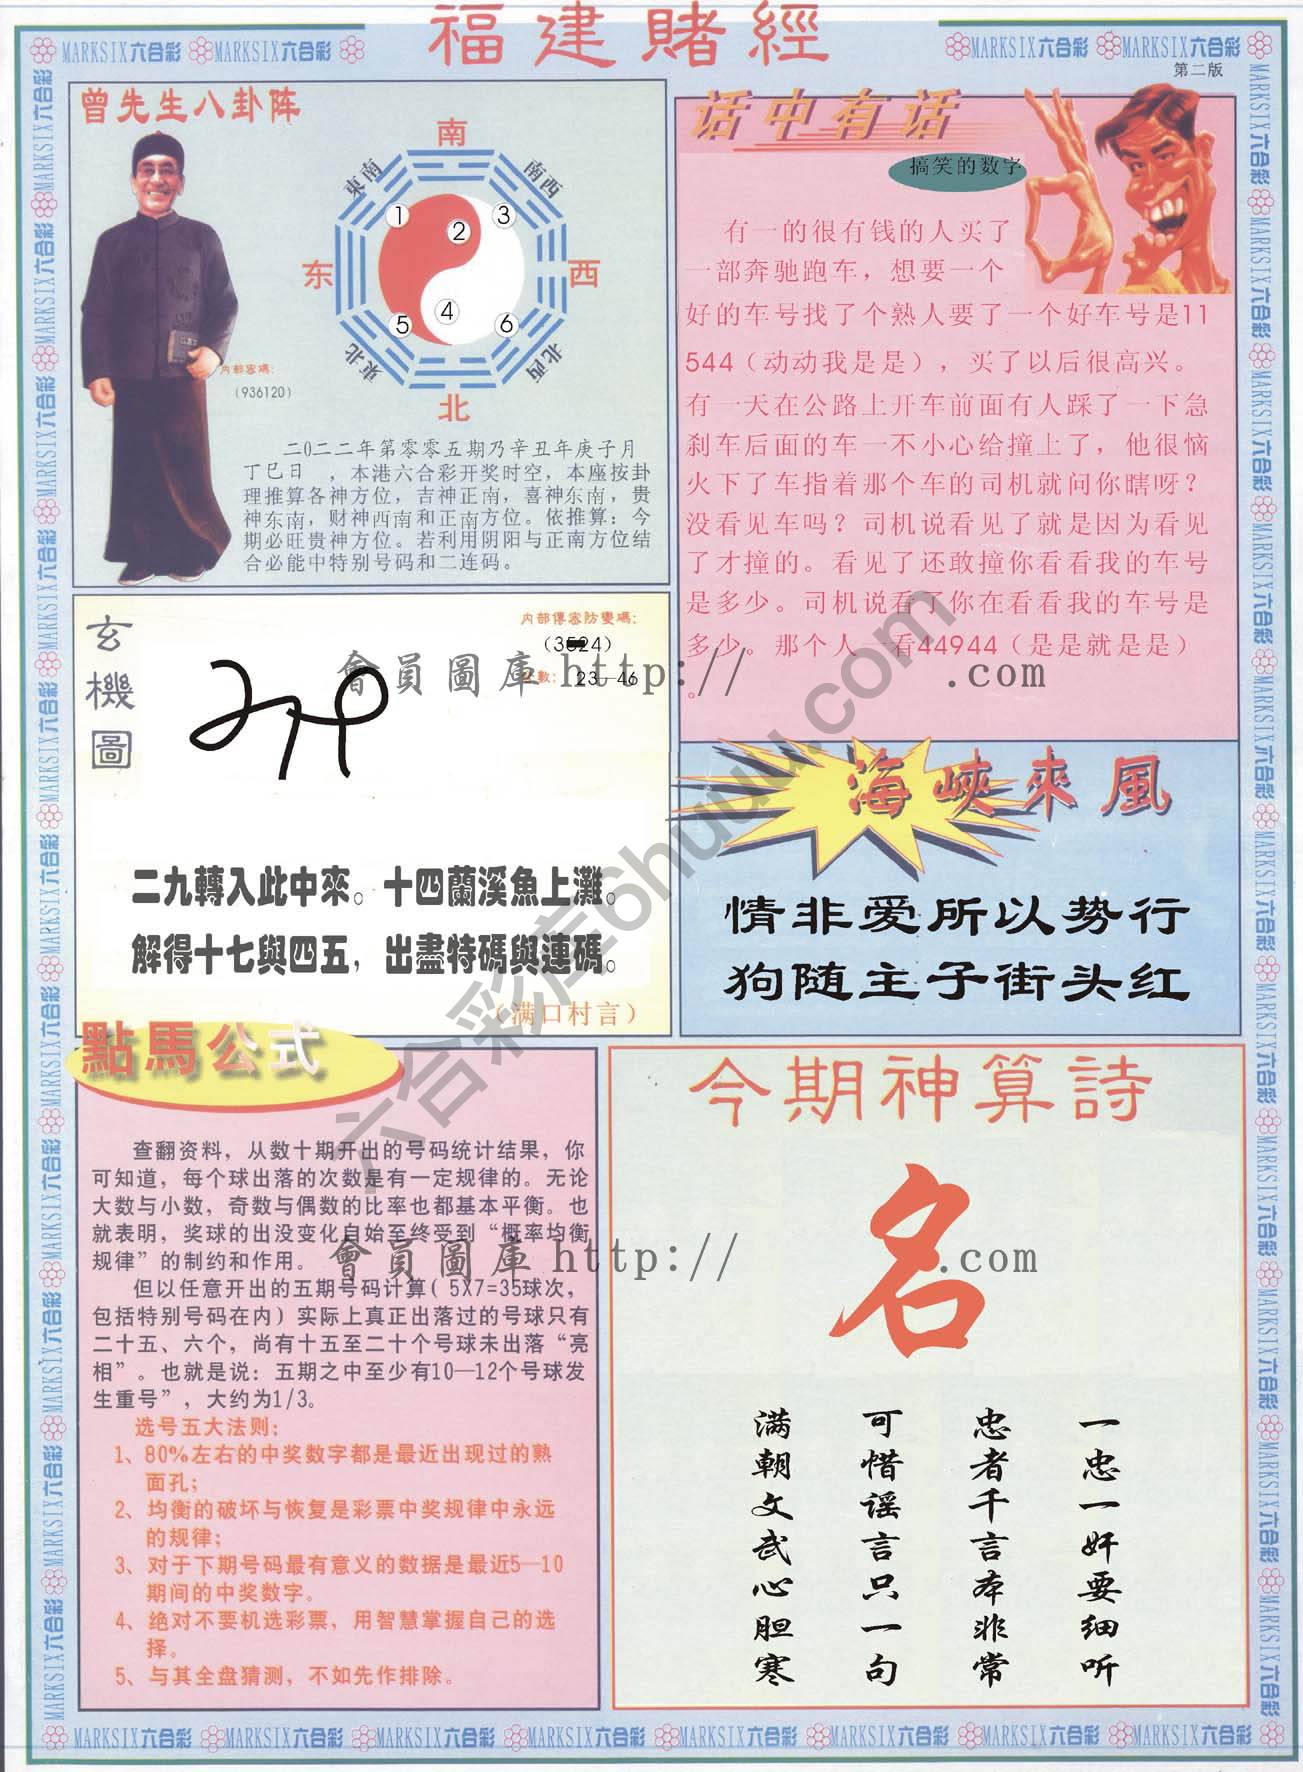 福建賭經
MARKSIX六合彩 MARKSIX六合彩
MARKSIX六合彩 MARKSIX六合彩
第二版
曾先生八卦阵
南
東南
南西
1
2
3
东
西
4
5
6
東北
北西
北
内部密碼:
(936120)
二0二二年第零零五期乃辛丑年庚子月
丁巳日 ,本港六合彩开奖时空,本座按卦
理推算各神方位,吉神正南,喜神东南,贵
神东南,财神西南和正南方位。依推算:今
期必旺贵神方位。若利用阴阳与正南方位结
合必能中特别号码和二连码。
话中有话
搞笑的数字
有一的很有钱的人买了
一部奔驰跑车,想要一个
好的车号找了个熟人要了一个好车号是11
544(动动我是是),买了以后很高兴。
有一天在公路上开车前面有人踩了一下急
刹车后面的车一不小心给撞上了,他很恼
火下了车指着那个车的司机就问你瞎呀?
没看见车吗?司机说看见了就是因为看见
了才撞的。看见了还敢撞你看看我的车号
是多少。司机说看了你在看看我的车号是
多少。那个人一看44944(是是就是是)
。
玄機圖
内部傳密防變碼:
數: 23—46
會員圖庫 http:// .com
二九轉入此中來。十四蘭溪魚上灘。
解得十七與四五,出盡特碼與連碼。
(满口村言)
海峽來風
情非爱所以势行
狗随主子街头红
六合彩库6huuu.com
點馬公式
查翻资料,从数十期开出的号码统计结果,你
可知道,每个球出落的次数是有一定规律的。无论
大数与小数,奇数与偶数的比率也都基本平衡。也
就表明,奖球的出没变化自始至终受到“概率均衡
规律”的制约和作用。
但以任意开出的五期号码计算( 5X7=35球次,
包括特别号码在内)实际上真正出落过的号球只有
二十五、六个,尚有十五至二十个号球未出落“亮
相”。也就是说:五期之中至少有10—12个号球发
生重号”,大约为1/3。
选号五大法则:
1、80%左右的中奖数字都是最近出现过的熟
面孔;
2、均衡的破坏与恢复是彩票中奖规律中永远
的规律;
3、对于下期号码最有意义的数据是最近5—10
期间的中奖数字。
4、绝对不要机选彩票,用智慧掌握自己的选
择。
5、与其全盘猜测,不如先作排除。
今期神算詩
名
會員圖庫 http:// .com
一忠一奸要细听
忠者千言本非常
可惜谣言只一句
满朝文武心胆寒
MARKSIX六合彩 MARKSIX六合彩 MARKSIX六合彩 MARKSIX六合彩 MARKSIX六合彩 MARKSIX六合彩 MARKSIX六合彩 MARKSIX六合彩